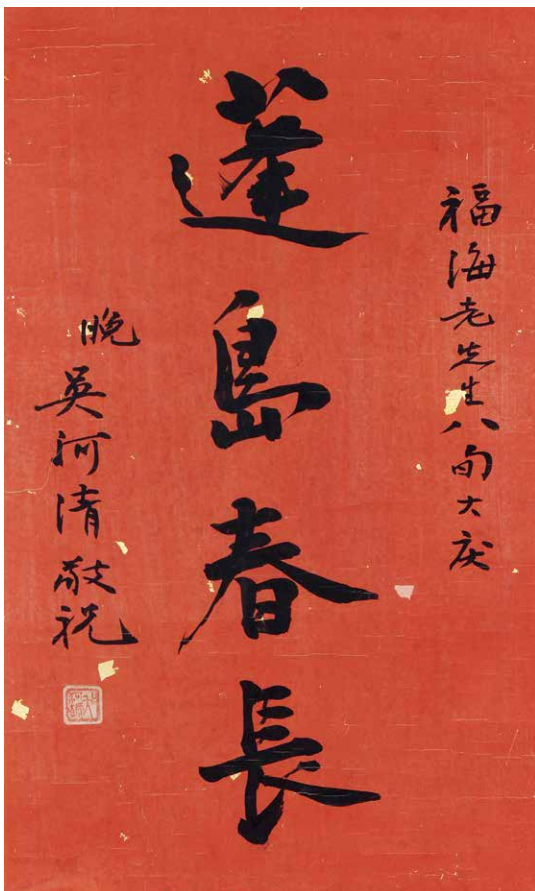 福海老先生八旬大庆
蓬島春長
晚吴河清敬祝